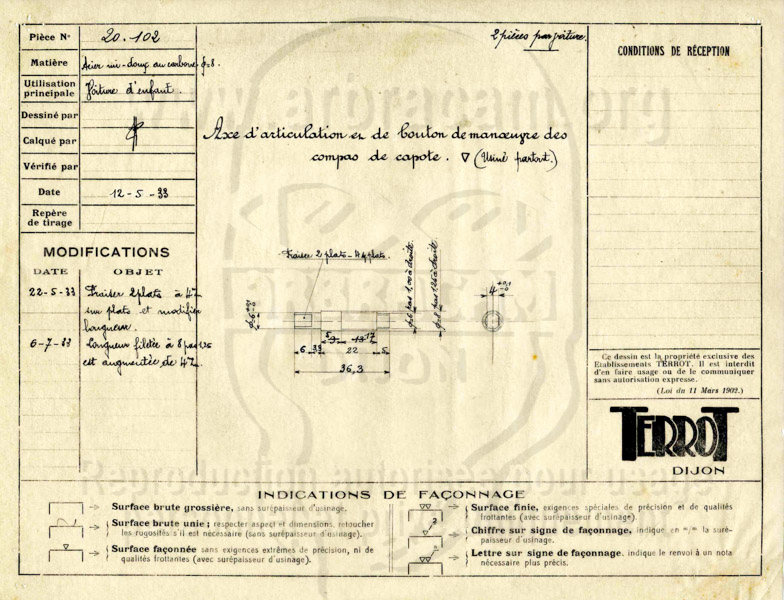 Pièce N° 20.102
Matière Acier mi-doux au carbone φ=8.
Utilisation principale Voiture d'enfant.
Dessiné par
Calqué par
Vérifié par
Date 12-5-33
Repère de tirage
2 pièces par voiture.
Axe d'articulation et de bouton de manœuvre des
compas de capote. ∇ (Usiné partout.)
CONDITIONS DE RÉCEPTION
MODIFICATIONS
DATE OBJET
22-5-33 Fraiser 2 plats à 4%
sur plats et modifier
longueur.
6-7-33 Longueur filetée à 8 pas 1,25
est augmentée de 4%.
Fraiser 2 plats - 4 s/ plats.
φ=6 +0,1 -0
φ=6 pas 1,00 à droite.
φ=8 pas 1,25 à droite.
4 +0,1 -0
5 9 13 17
6 3,3 22 5
36,3
Ce dessin est la propriété exclusive des
Etablissements TERROT. Il est interdit
d'en faire usage ou de le communiquer
sans autorisation expresse.
(Loi du 11 Mars 1902.)
TERROT
DIJON
INDICATIONS DE FAÇONNAGE
Surface brute grossière, sans surépaisseur d'usinage.
Surface brute unie ; respecter aspect et dimensions, retoucher
les rugosités s'il est nécessaire (sans surépaisseur d'usinage).
Surface façonnée sans exigences extrêmes de précision, ni de
qualités frottantes (avec surépaisseur d'usinage).
Surface finie, exigences spéciales de précision et de qualités
frottantes (avec surépaisseur d'usinage).
Chiffre sur signe de façonnage, indique en m/m la suré-
paisseur d'usinage.
Lettre sur signe de façonnage. indique le renvoi à un nota
nécessaire plus précis.
www.arbracam.org
ARBRACAM
DIJON
Reproduction autorisée pour usage